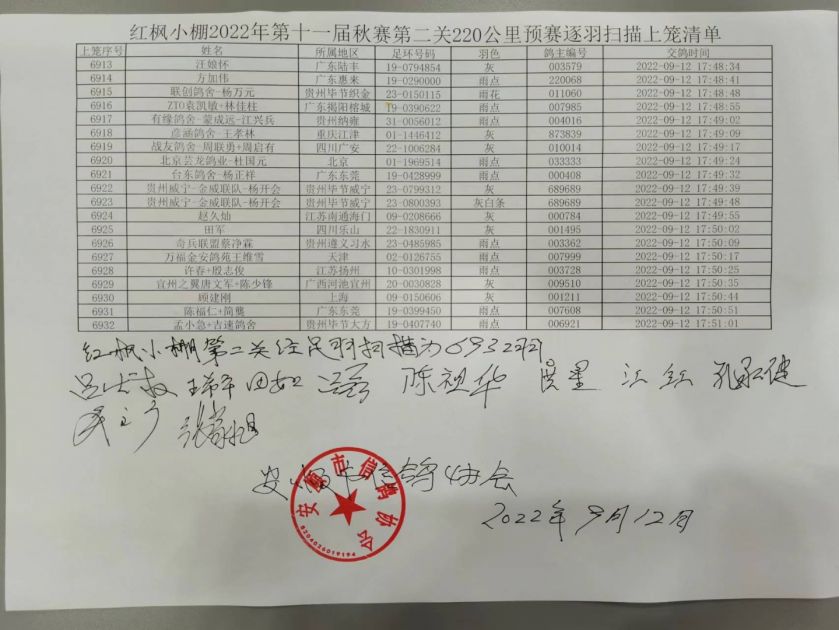 红枫小棚2022年第十一届秋赛第二关220公里预赛逐羽扫描上笼清单
上笼序号 姓名 所属地区 足环号码 羽色 鸽主编号 交鸽时间
6913 汪娘怀 广东陆丰 19-0794854 灰 003579 2022-09-12 17:48:34
6914 方加伟 广东惠来 19-0290000 雨点 220068 2022-09-12 17:48:41
6915 联创鸽舍-杨万元 贵州毕节织金 23-0150115 雨花 011060 2022-09-12 17:48:48
6916 ZTO袁凯敏+林佳柱 广东揭阳榕城 19-0390622 雨点 007985 2022-09-12 17:48:55
6917 有缘鸽舍-蒙成远-江兴兵 贵州纳雍 31-0056012 雨点 004016 2022-09-12 17:49:02
6918 彦涵鸽舍-王孝林 重庆江津 01-1446412 灰 873839 2022-09-12 17:49:09
6919 战友鸽舍-周联勇+周启有 四川广安 22-1006284 灰 010014 2022-09-12 17:49:17
6920 北京芸龙鸽业-杜国元 北京 01-1969514 雨点 033333 2022-09-12 17:49:24
6921 台东鸽舍-杨正祥 广东东莞 19-0428999 雨点 000408 2022-09-12 17:49:32
6922 贵州威宁-金威联队-杨开会 贵州毕节威宁 23-0799312 灰 689689 2022-09-12 17:49:39
6923 贵州威宁-金威联队-杨开会 贵州毕节威宁 23-0800393 灰白条 689689 2022-09-12 17:49:48
6924 赵久灿 江苏南通海门 09-0208666 灰 000784 2022-09-12 17:49:55
6925 田军 四川乐山 22-1830911 灰 001495 2022-09-12 17:50:02
6926 奇兵联盟蔡净霖 贵州遵义习水 23-0485985 雨点 003362 2022-09-12 17:50:09
6927 万福金安鸽苑王维雪 天津 02-0126755 雨点 007999 2022-09-12 17:50:17
6928 许春+殷志俊 江苏扬州 10-0301998 雨点 003728 2022-09-12 17:50:25
6929 宜州之翼唐文军+陈少锋 广西河池宜州 20-0030828 灰 009510 2022-09-12 17:50:35
6930 顾建刚 上海 09-0150606 灰 001211 2022-09-12 17:50:44
6931 陈福仁+简龑 广东东莞 19-0399450 雨点 007608 2022-09-12 17:50:51
6932 孟小急+吉速鸽舍 贵州毕节大方 19-0407740 雨点 006921 2022-09-12 17:51:01
红枫小棚第二关经逐羽扫描为6932羽
陈祖华 江红
安顺市信鸽协会
安顺市信鸽协会
2022年9月12日